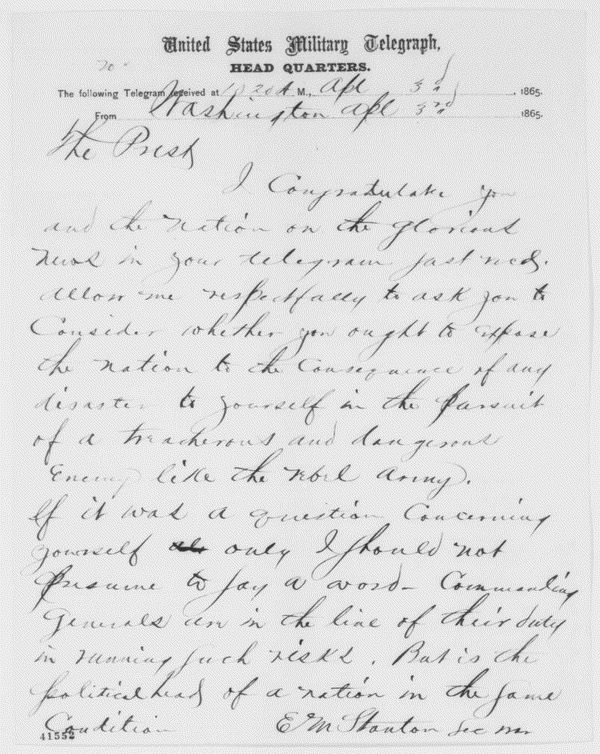 United States Military Telegraph,
HEAD QUARTERS.
The following Telegram received at 10 20 A M., Apl 3d 1865.
From Washington Apl 3rd 1865.
The Prest
I Congratulate you
and the nation on the glorious
news in your telegram just recd.
Allow me respectfully to ask you to
Consider whether you ought to expose
the nation to the Consequence of any
disaster to yourself in the pursuit
of a treacherous and dangerous
Enemy like the rebel Army.
If it was a question Concerning
yourself only I should not
presume to say a word – Commanding
Generals are in the line of their duty
in running such risks. But is the
political head of a nation in the same
Condition E M Stanton Sec War
41552